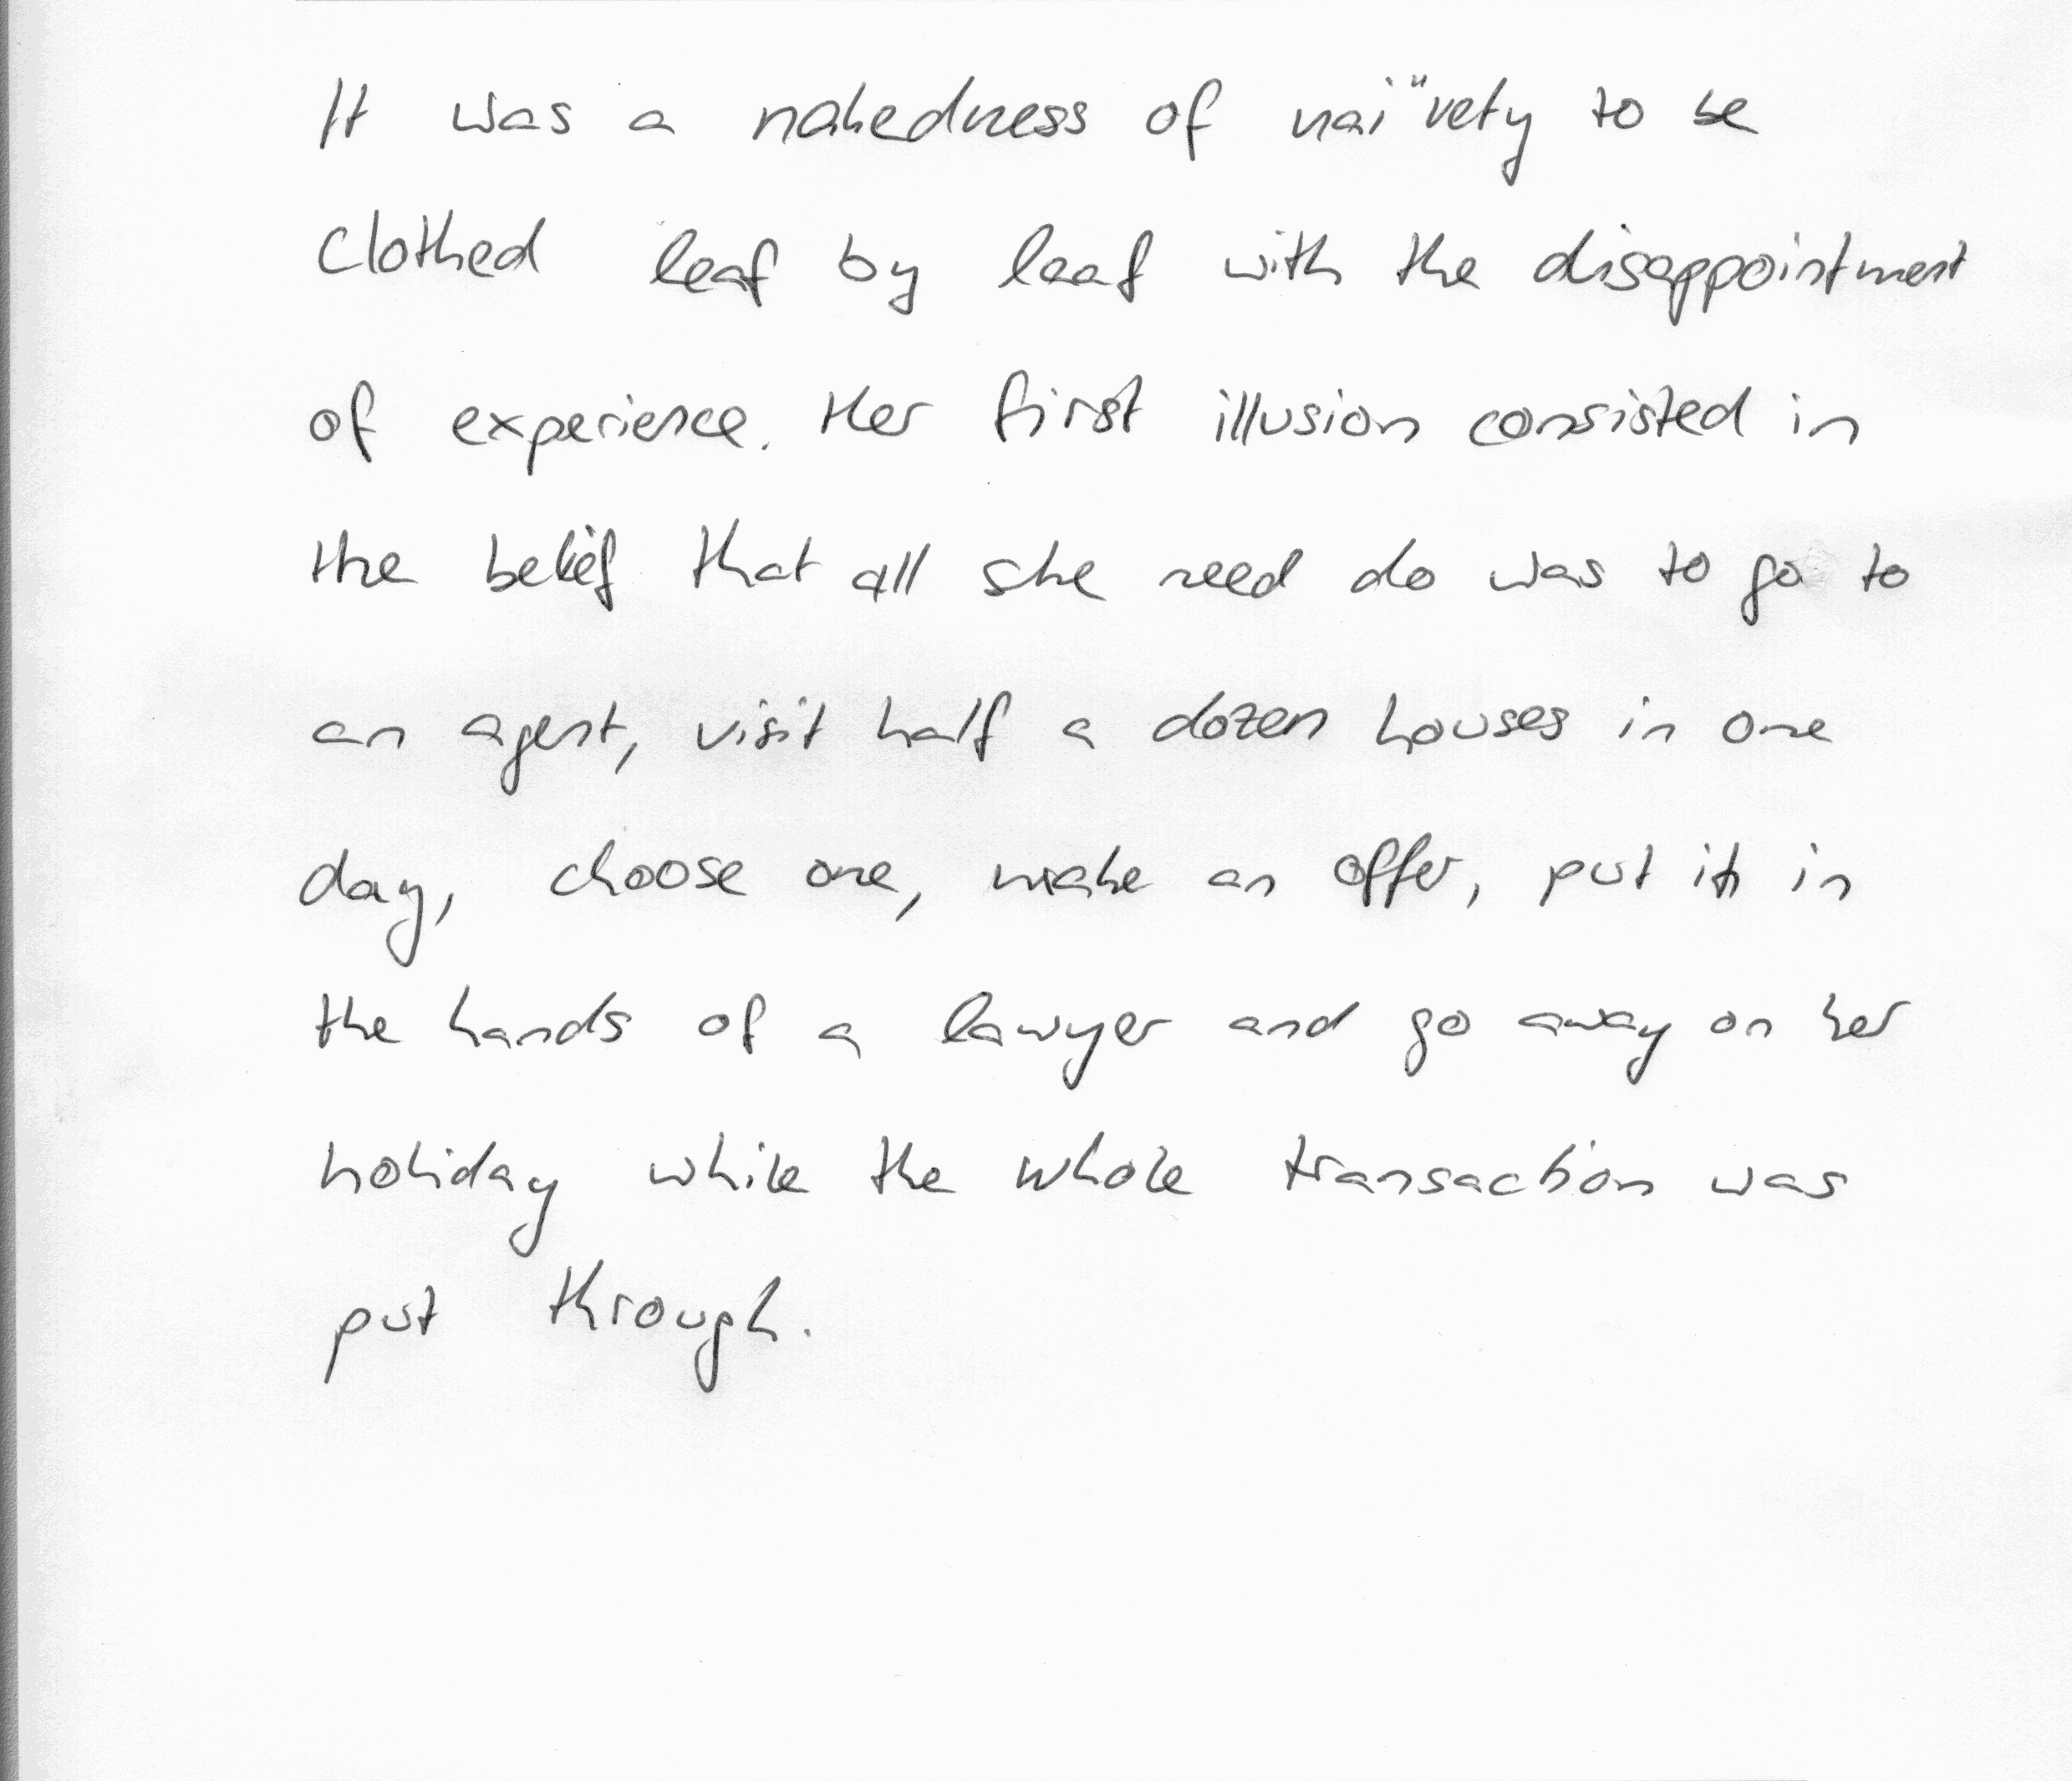 It was a nakedness of nai"vety to be
clothed leaf by leaf with the disappointment
of experience. Her first illusion consisted in
the belief that all she need do was to go to
an agent, visit half a dozen houses in one
day, choose one, make an offer, put it in
the hands of a lawyer and go away on her
holiday while the whole transaction was
put through.